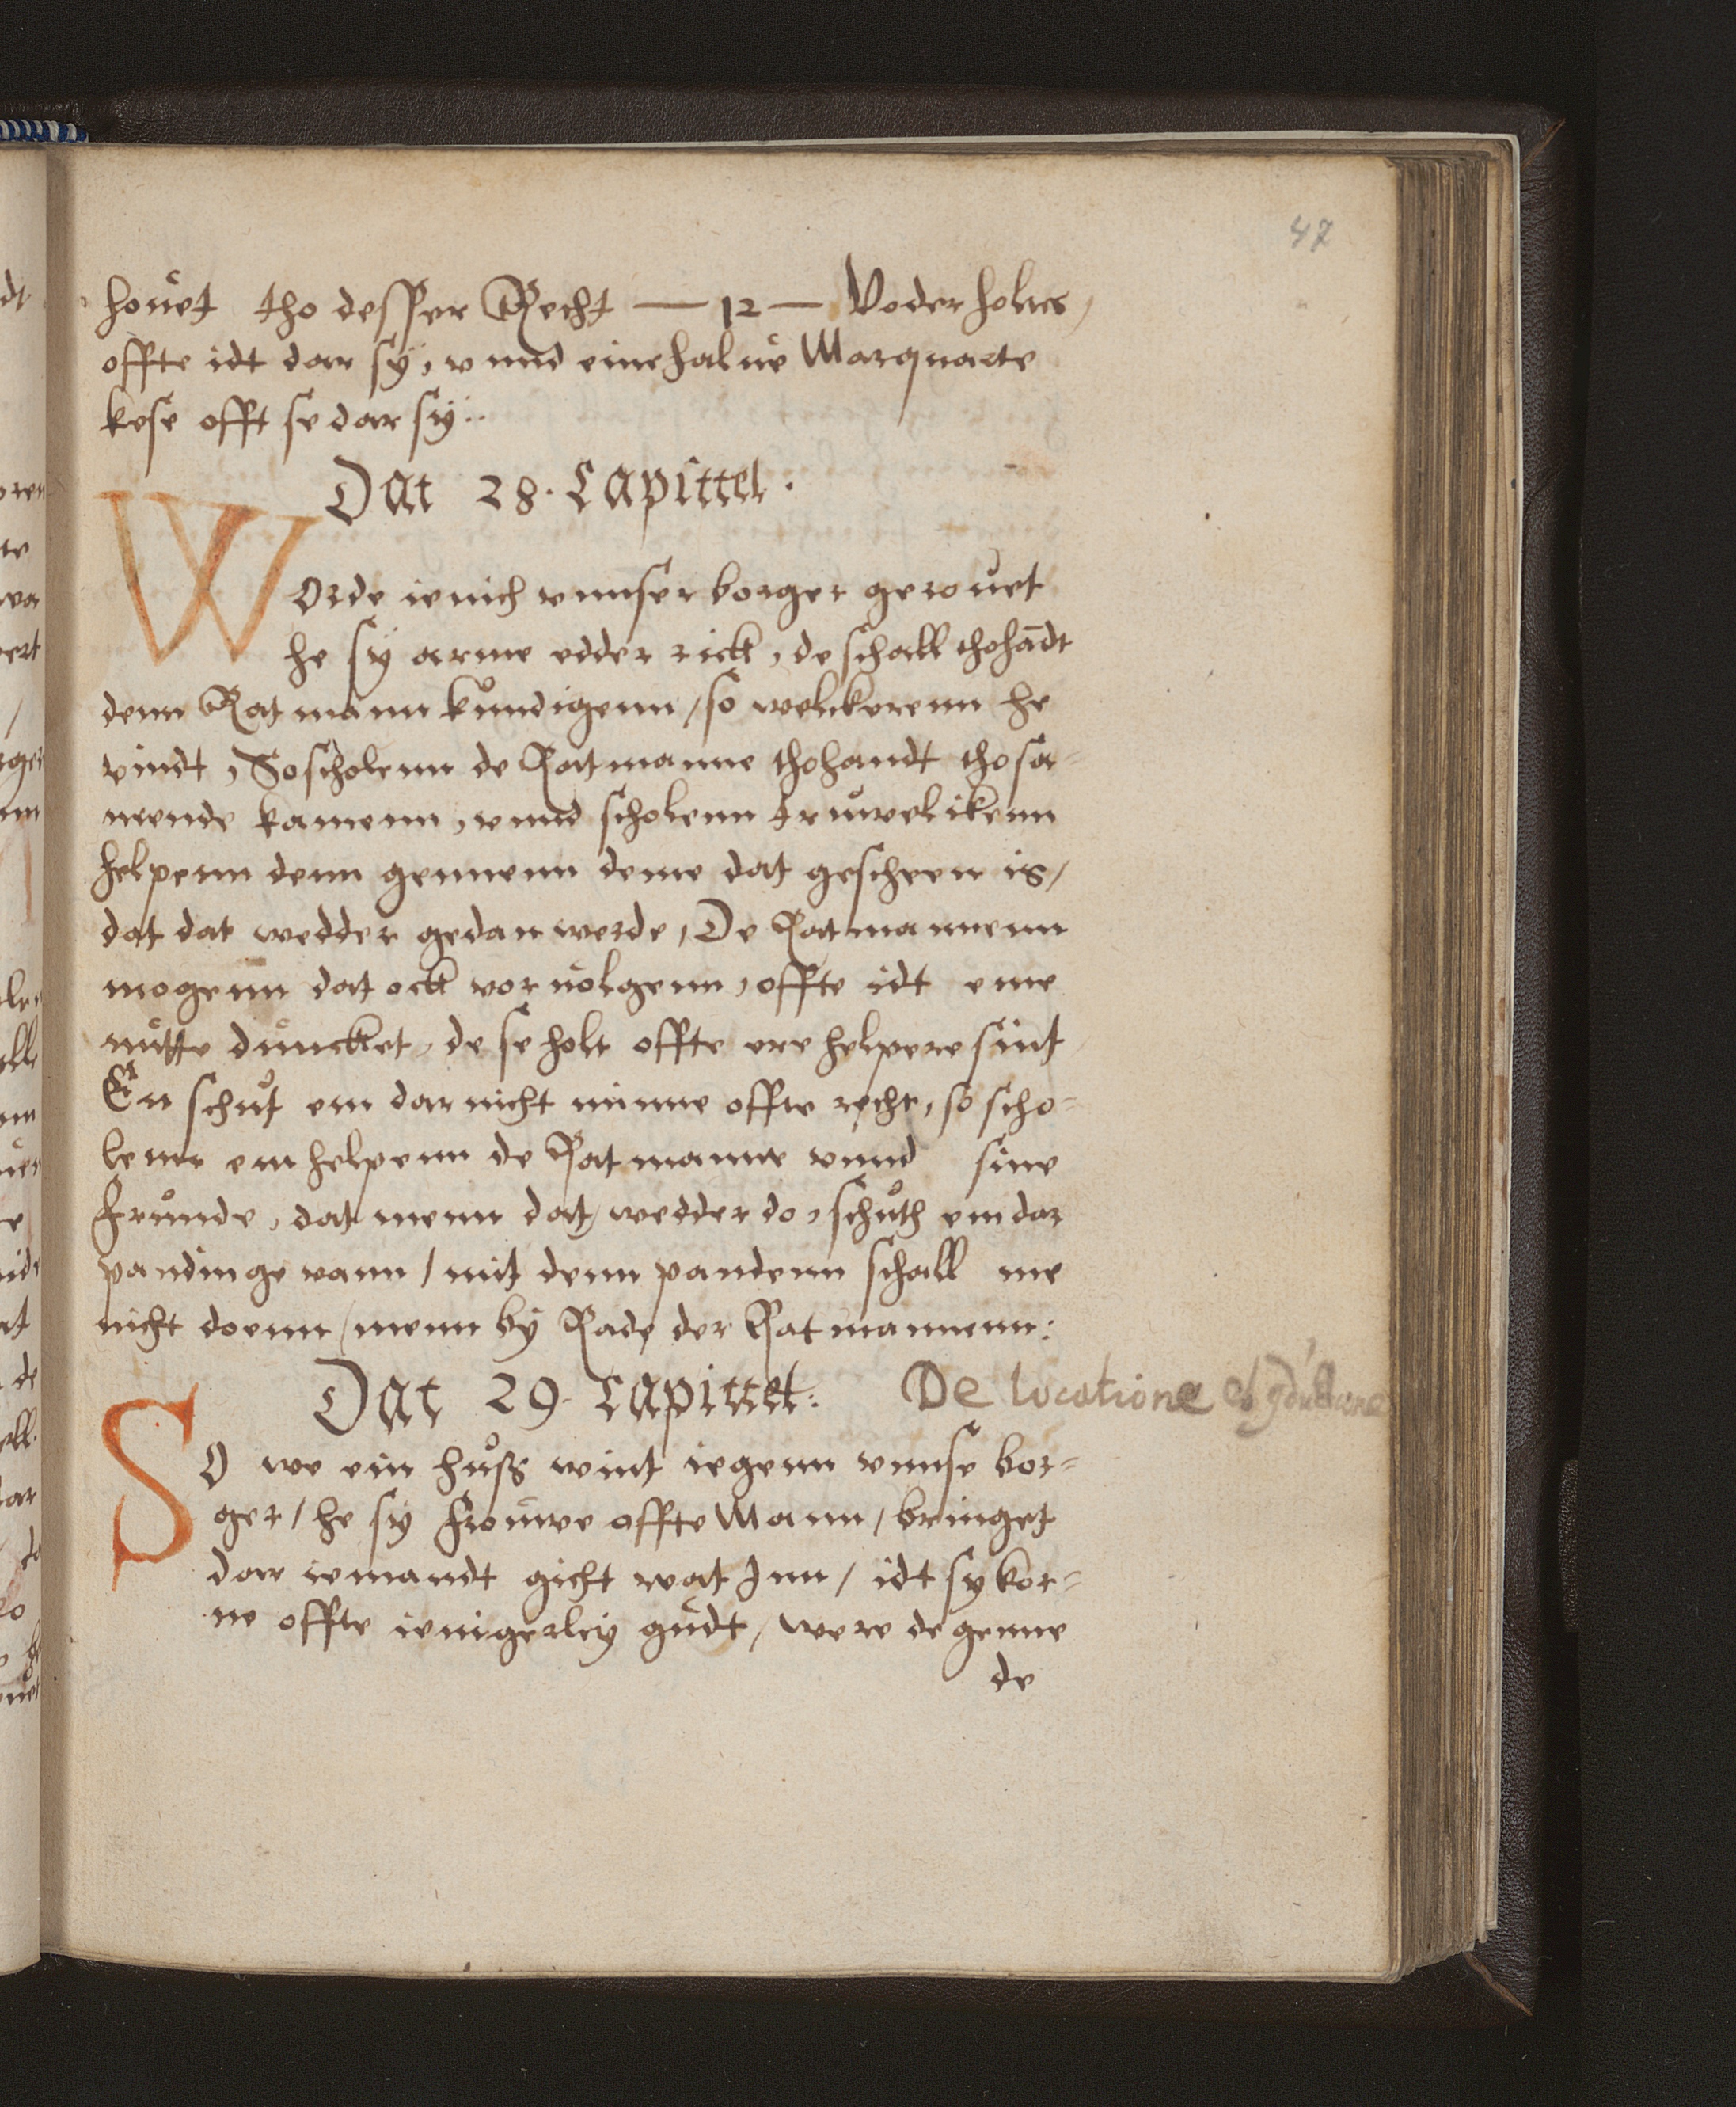 47
houet tho desser Recht — 12 — Voder holtes,
offte idt dar sÿ, vnnd eine halue Marquarte
kese offt se dar sÿ:.
Dat 28. Capittel.
WOrde ienich vnnser borger gerouet
he sÿ arme edder rick, de schall thohādt
denn Ratmann kůndigenn, so welckerenn he
vindt, So scholenn de Ratmanne thohandt thosa-
mende kamenn, vnnd scholenn truwelikenn
helpenn denn gennenn deme dat gescheen is,
dat dat wedder gedan werde, De Ratmannenn
mogenn dat ock voruolgenn, offte idt eme
nutte duncket, de se holt offte ere helpere sint
En schut em dar nicht minne offte recht, so scho-
lenn em helpenn de Ratmanne vnnd sine
frůnde, dat menn dat wedder do, schůth em dar
pandinge vann, mit denn pandenn schall me
nicht doenn, menn bÿ Rade der Ratmannenn:
Dat 29. Capittel: De locatione
SO we ein hůss wint iegenn vnnse bor-
ger, he sy frouwe offte Mann, bringet
dar iemandt gicht wat Inn, idt sy kor-
ne offte ienigerleÿ gudt, were de genne
de